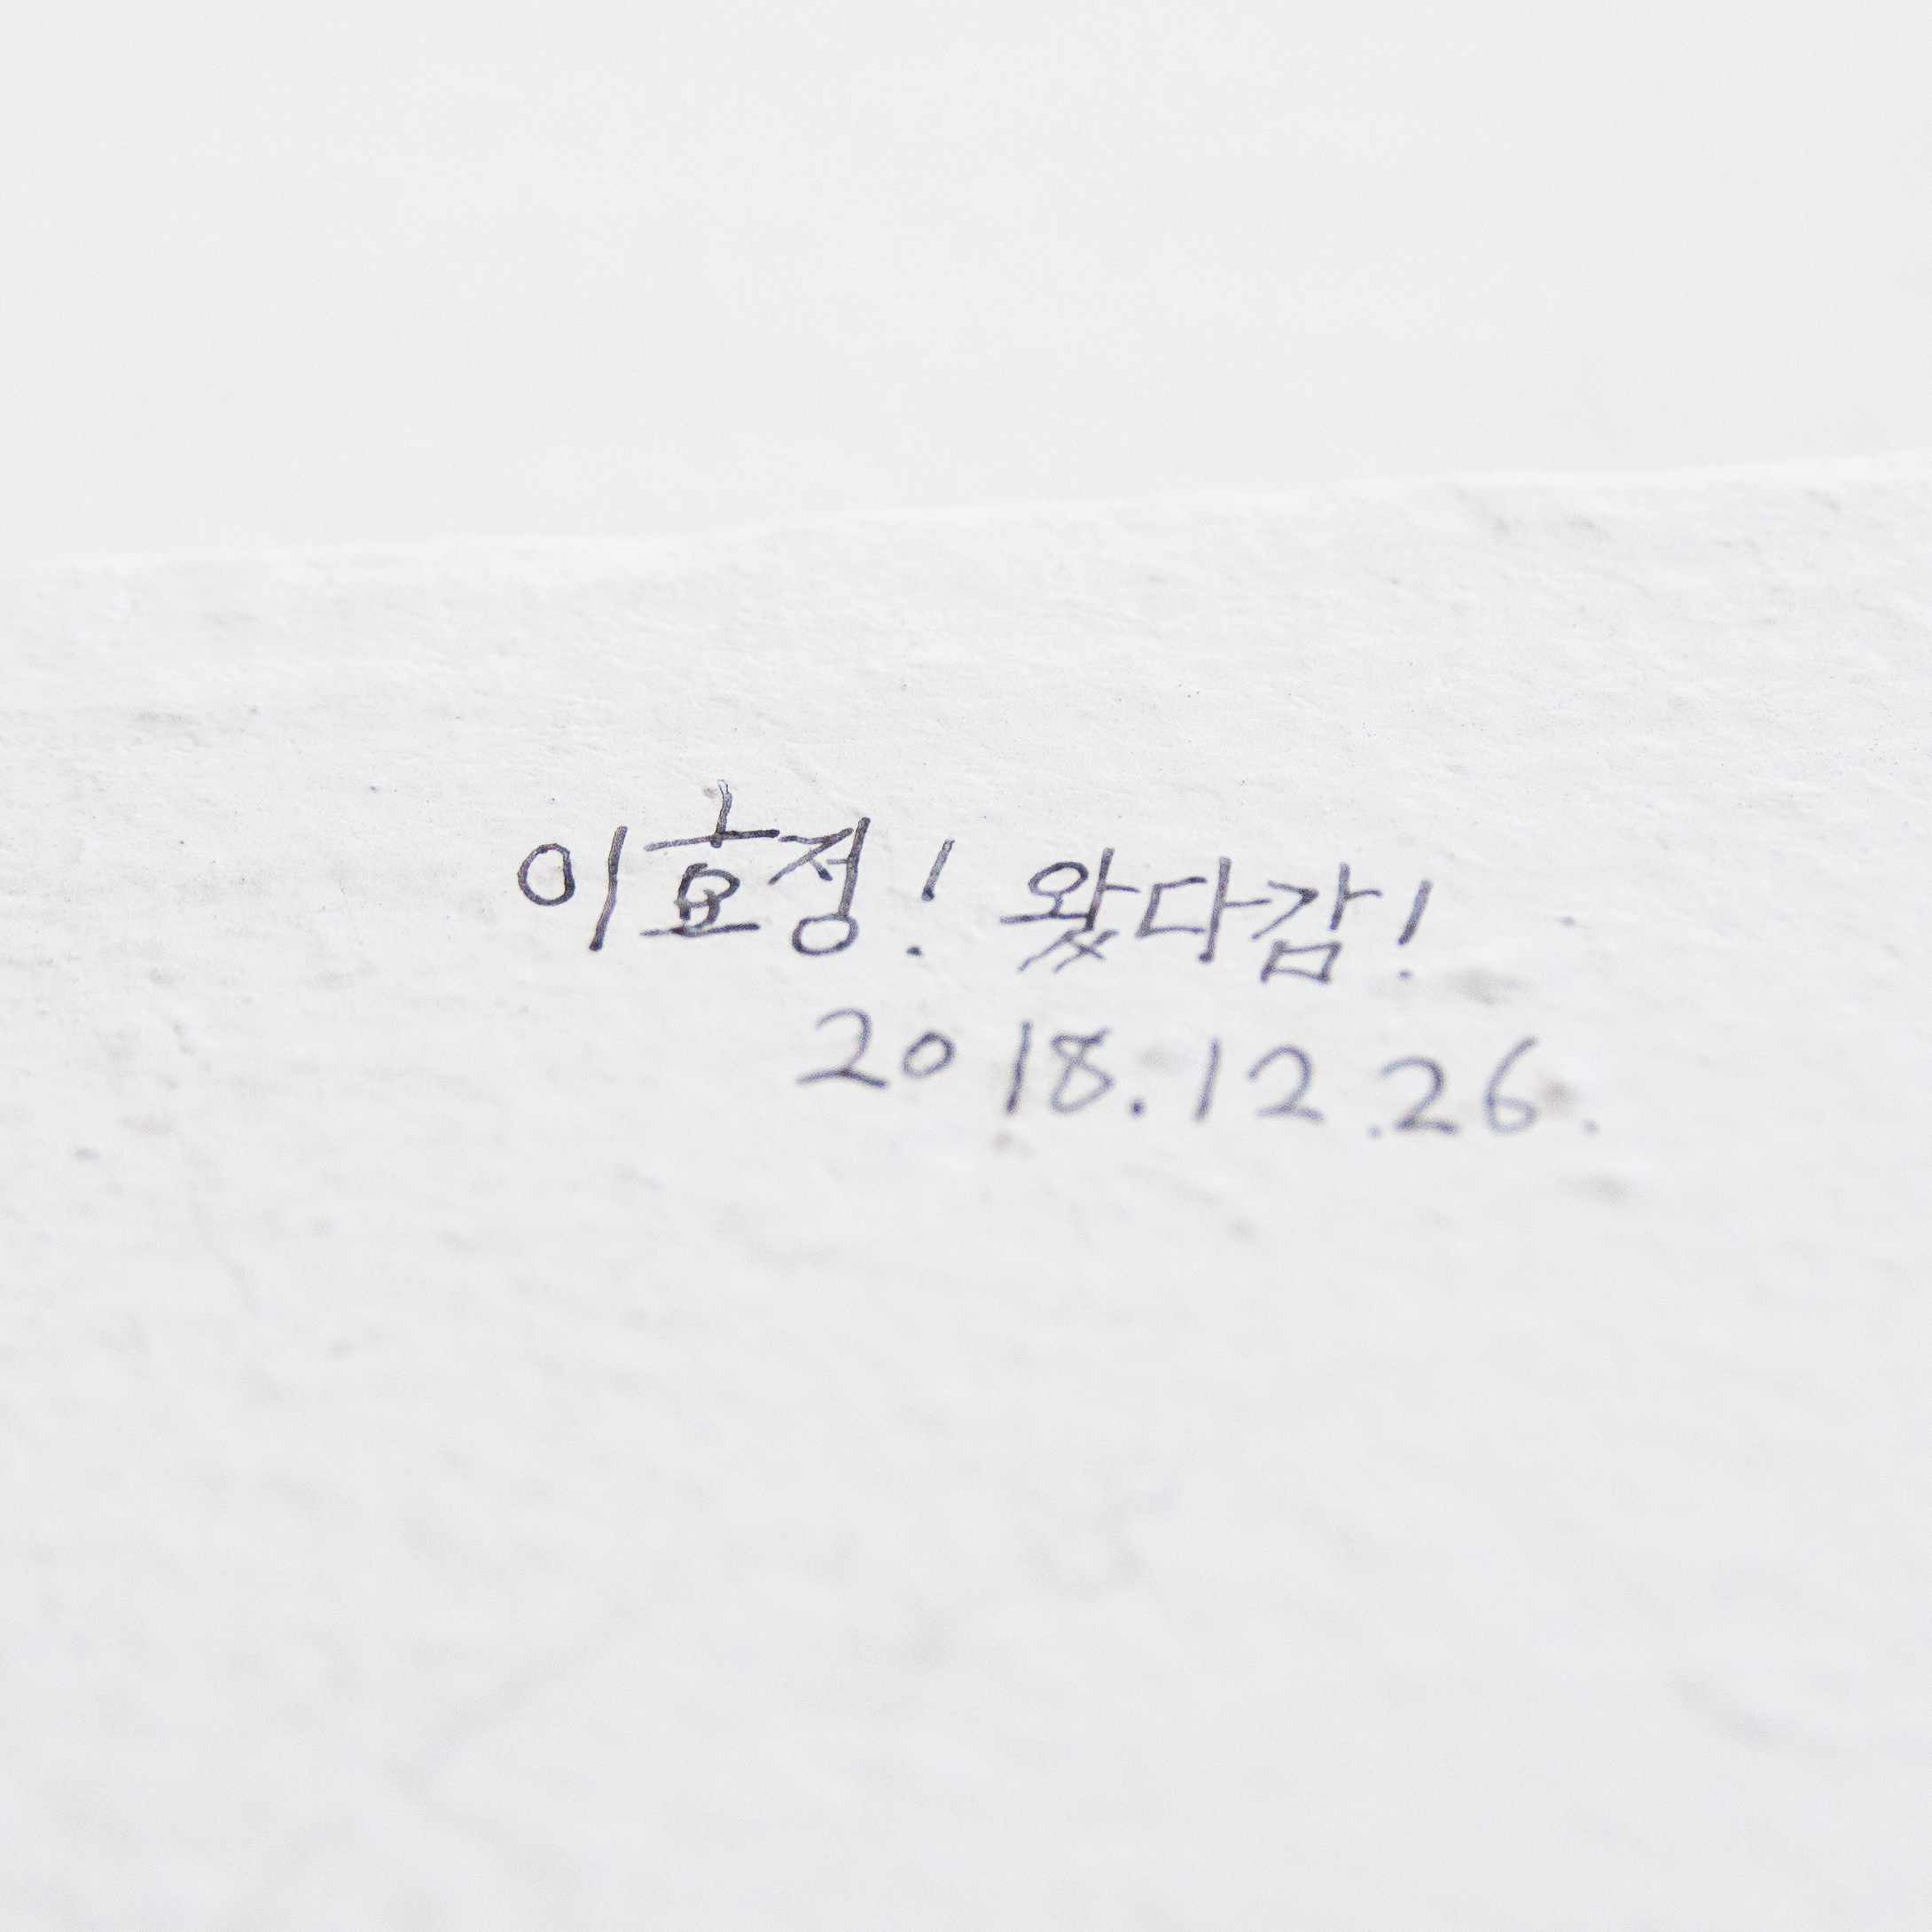 이효정! 왔다감!
2018.12.26.